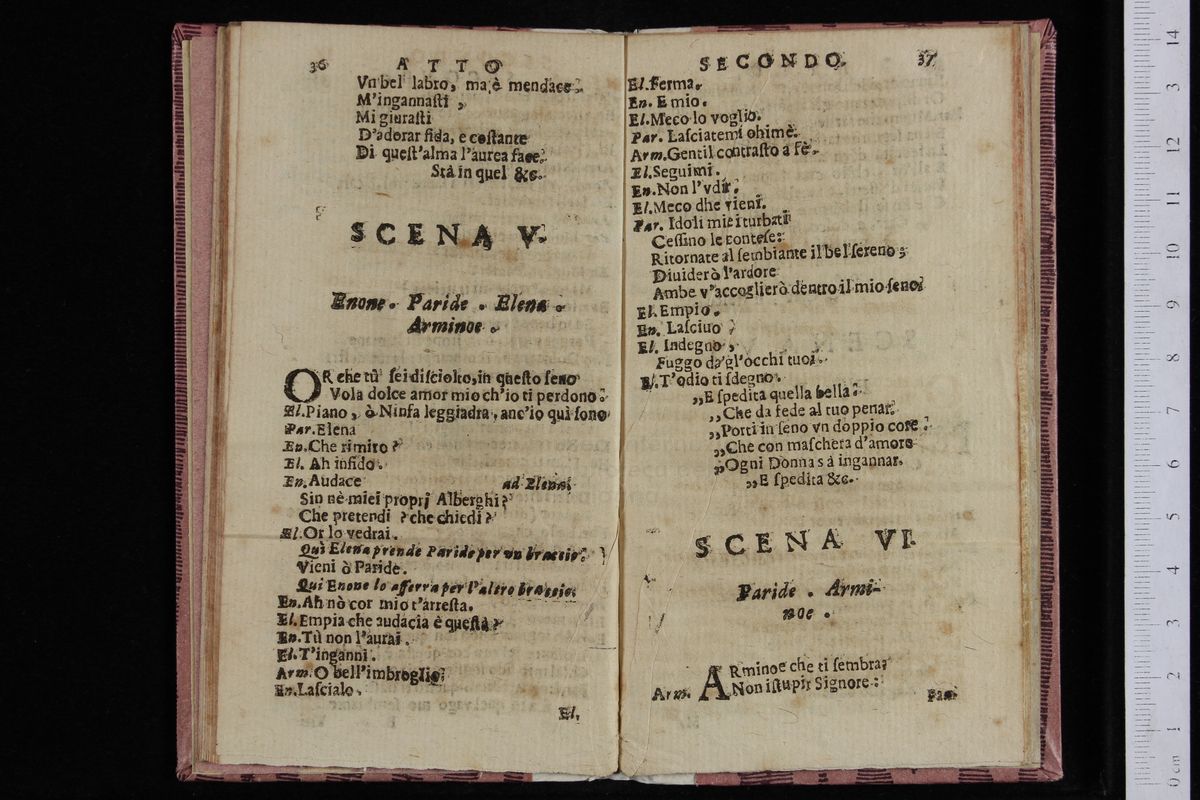 36 ATTO
Vn bel labro, ma è mendace.
M'ingannaſti,
Mi giuraſti
D'adorar fida, e coſtante
Di queſt'alma l'aurea face.
Stà in quel &c.
SCENA V.
Enone. Paride. Elena.
Arminoe.
OR che tù ſei diſciolto, in queſto ſeno
Vola dolce amor mio ch'io ti perdono.
El. Piano, ò Ninfa leggiadra, anc'io quì ſono
Par. Elena
En. Che rimiro?
El. Ah infido.
En. Audace ad Elena
Sin nè miei proprj Alberghi?
Che pretendi? che chiedi?
El. Or lo vedrai.
Quì Elena prende Paride per vn braccio.
Vieni ò Paride.
Quì Enone lo afferra per l'altro braccio.
En. Ah nò cor mio t'arreſta.
El. Empia che audacia è queſta?
En. Tù non l'aurai.
El. T'inganni.
Arm. O bell'imbroglio!
En. Laſcialo.
El.
SECONDO. 37
El. Ferma.
En. E mio.
El. Meco lo voglio.
Par. Laſciatemi ohimè.
Arm. Gentil contraſto a fè.
El. Seguimi.
En. Non l'vdir.
El. Meco dhe vieni.
Par. Idoli miei turbati
Ceſſino le conteſe:
Ritornate al ſembiante il bel ſereno;
Diuiderò l'ardore
Ambe v'accoglierò dentro il mio ſeno
El. Empio.
En. Laſciuo
El. Indegno,
Fuggo da gl'occhi tuoi.
El. T'odio ti ſdegno.
„E ſpedita quella bella
„Che da fede al tuo penar.
„Porti in ſeno vn doppio core
„Che con maſchera d'amore
„Ogni Donna sà ingannar.
„E ſpedita &c.
SCENA VI.
Paride. Armi-
noe.
ARminoe che ti ſembra?
Arm. Non iſtupir Signore:
Par.